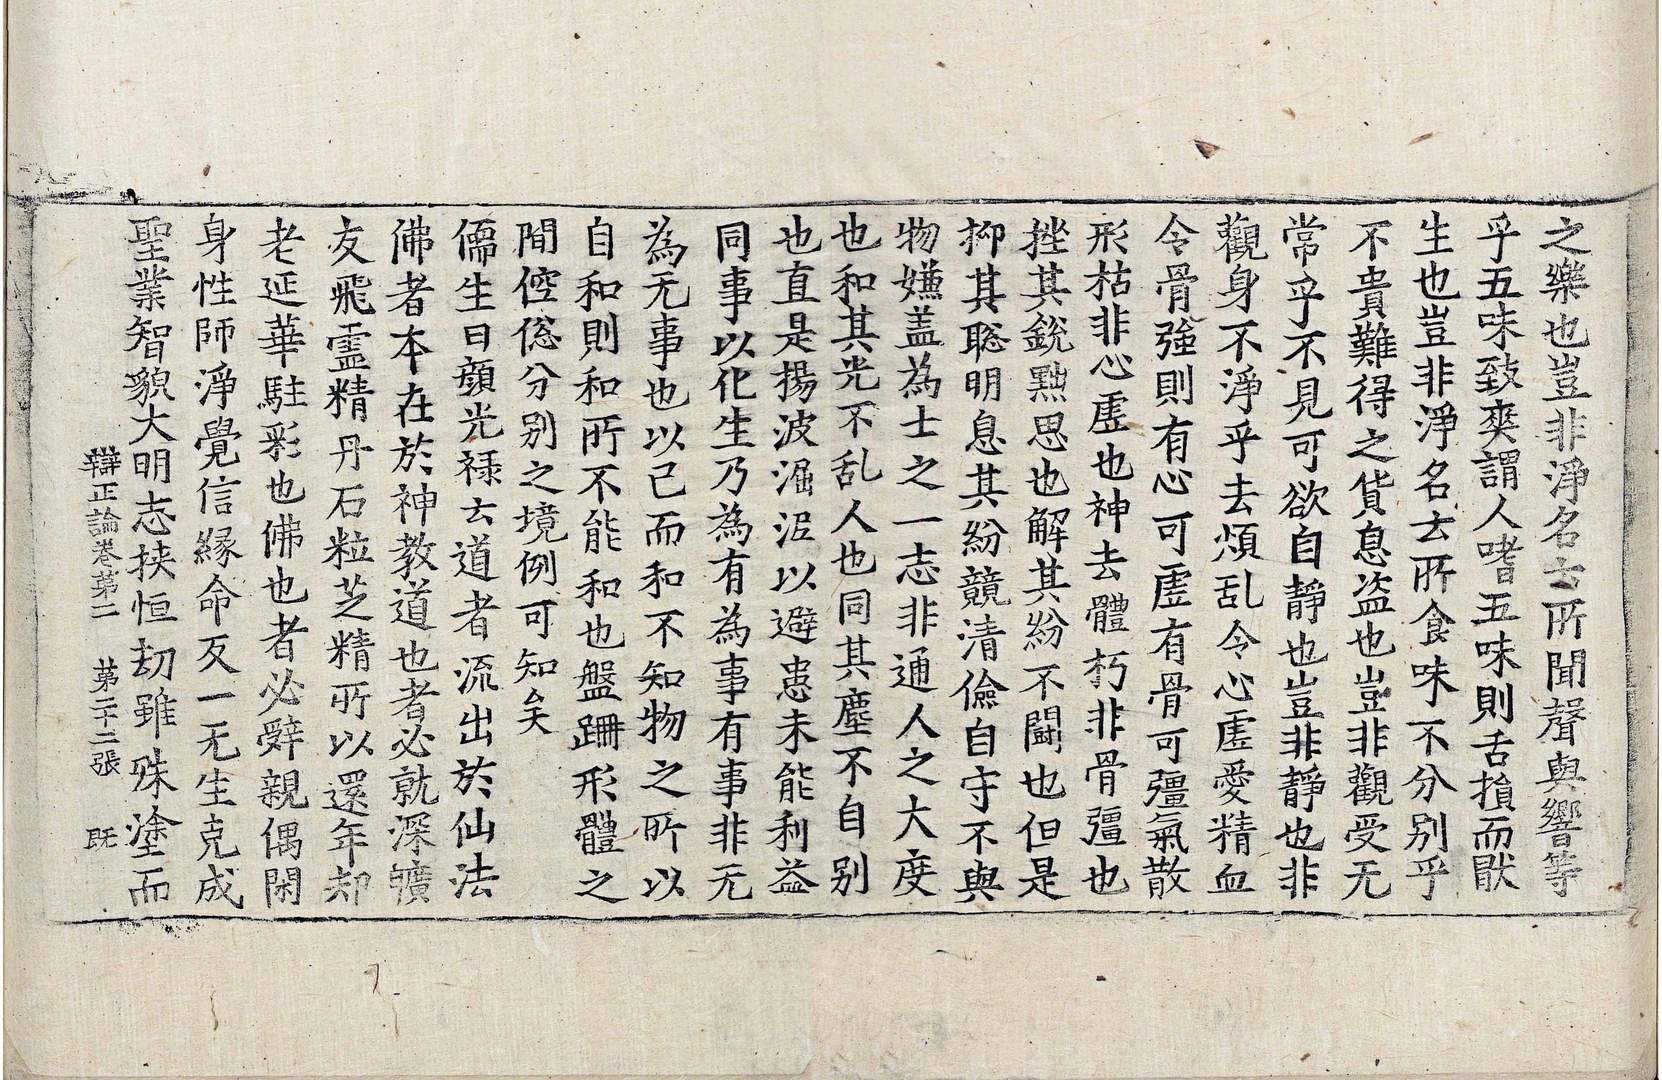 之樂也豈非淨名士所聞聲與響等
乎五味致爽謂人嗜五味則舌損而猒
生也豈非淨名士所食味不分別乎
不貴難得之貨息盜也豈非觀受无
常乎不見可欲自靜也豈非靜也非
觀身不淨乎去煩乱令心虛愛精血
令骨強則有心可虛有骨可彊氣散
形枯非心虛也神去體朽非骨彊也
挫其銳㸃思也解其紛不闘也但是
抑其聡明息其紛競清儉自守不與
物嫌盖為士之一志非通人之大度
也和其光不乱人也同其塵不自別
也直是揚波淈泥以避患未能利益
同事以化生乃為有為事有事非无
為无事也以己而和不知物之所以
自和則和所不能和也盤跚形體之
間倥偬分別之境例可知矣
儒生曰顔光禄云道者流出於仙法
佛者本在於神教道也者必就深曠
友飛靈精丹石粒芝精所以還年却
老延華駐彩也佛也者必辤親偶閑
身性師淨覺信縁命反一无生克成
聖業智貌大明志挾恒劫雖殊塗而
辯正論卷第二 第二十二張 旣